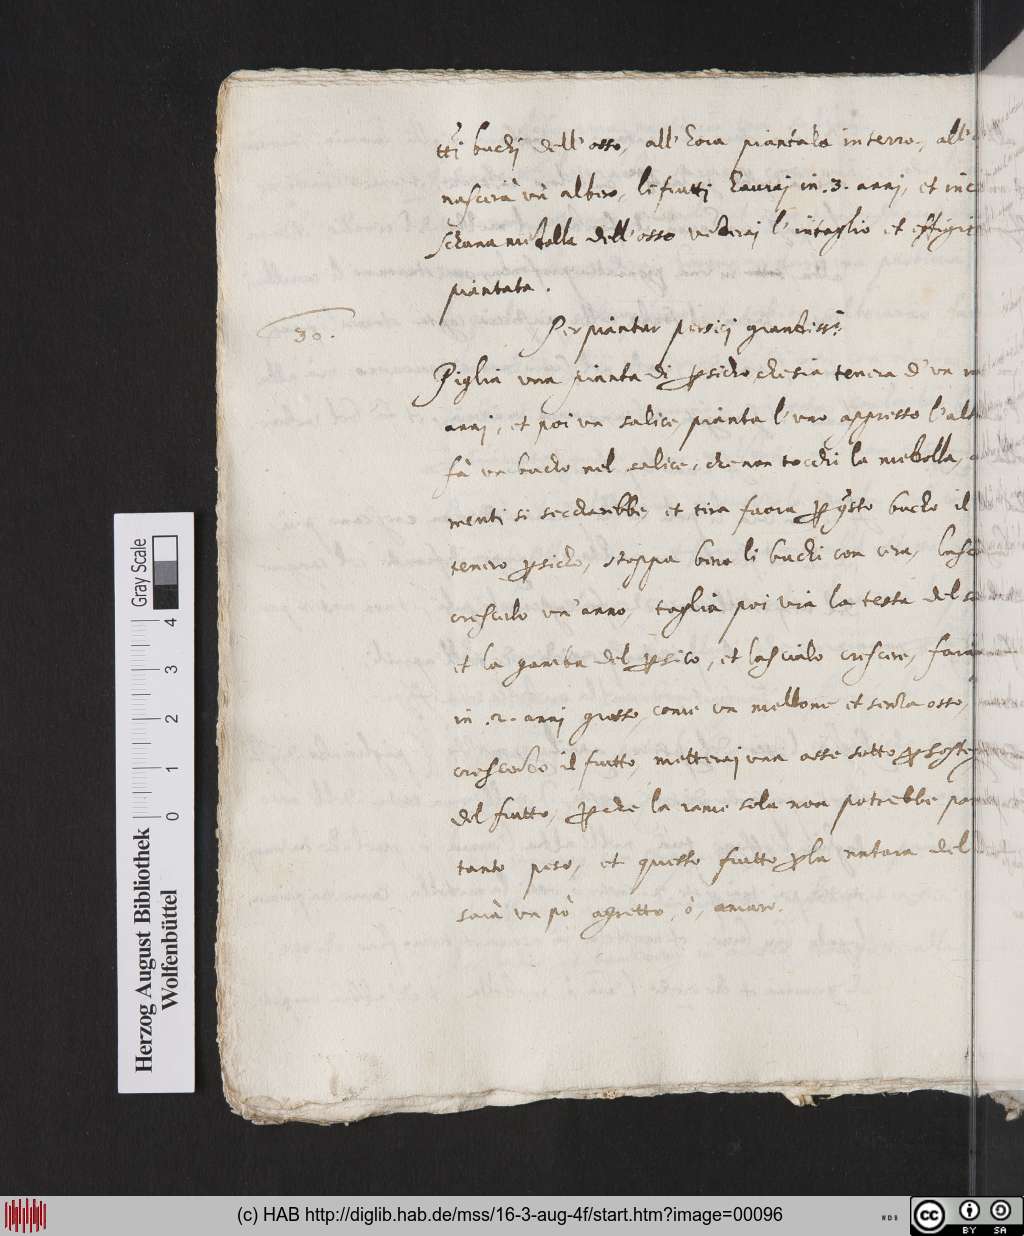 tti buchi dell' osso, all' hora piantala in terra, all'
nascerà un albero, li frutti haurai in .3. anni, et in
medolla dell' osso vederai l' intaglio et effigie
piantata.
30.
Per piantar persici grandiss.i
Piglia una pianta di p̱sicho che sia tenera d' un
anni, et poi un salice pianta l' uno appresso l'al
fà un bucho nel salice, che non tocchi la medolla,
menti si seccharebbe, et tira fuora p̱ q̃sto bucho il
tenero p̱sicho, stoppa bene li buchi con cera, lasc
crescerlo un' anno, taglia poi via la testa del sa
et la gamba del p̱sico, et lascialo crescere, farà
in .2. anni grosso, come un mellone et senza osso,
crescendo il frutto, metterai una asse sotto p̱ soste
del frutto, p̱che la rame sola non potrebbe po
tanto peso, et questo frutto p̱ la natura del
sarà un pò agretto, ò, amaro.
Gray Scale
0 1 2 3 4
Herzog August Bibliothek
Wolfenbüttel
(c) HAB http://diglib.hab.de/mss/16-3-aug-4f/start.htm?image=00096
WDB
cc
BY SA